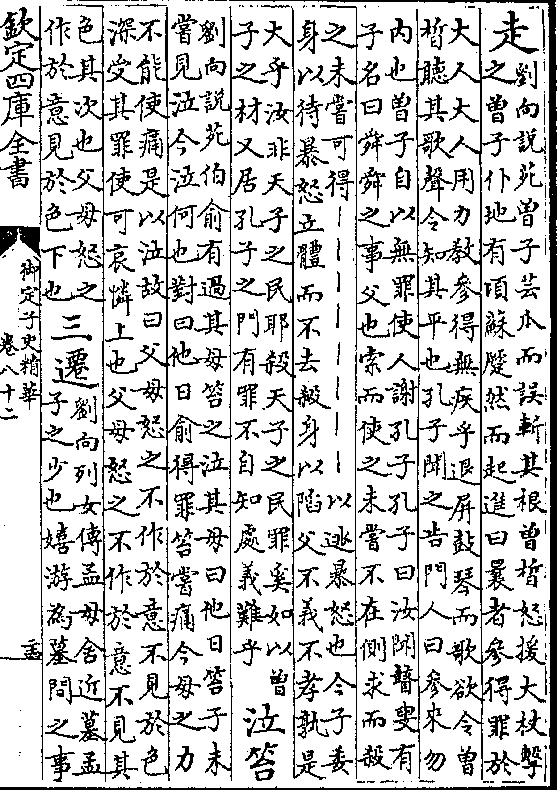 走
劉向說苑曾子芸瓜而誤斬其根曾晳怒援大杖擊
之曾子仆地有頃蘇蹷然而起進曰曩者參得罪於
大人大人用力教參得無疾乎退屏鼓琴而歌欲令曾
晳聽其歌聲令知其平也孔子聞之告門人曰參來勿
内也曾子自以無罪使人謝孔子孔子曰汝聞瞽叟有
子名曰舜舜之事父也索而使之未嘗不在側求而殺
之未嘗可得｜｜｜｜｜｜｜｜以逃暴怒也今子委
身以待暴怒立體而不去殺身以陷父不義不孝孰是
大乎汝非天子之民耶殺天子之民罪奚如以曾
子之材又居孔子之門有罪不自知處義難乎
泣笞
劉向說苑伯俞有過其母笞之泣其母曰他日笞子未
嘗見泣今泣何也對曰他日俞得罪笞嘗痛今母之力
不能使痛是以泣故曰父母怒之不作於意不見於色
深受其罪使可哀憐上也父母怒之不作於意不見其
色其次也父母怒之
作於意見於色下也
三遷
劉向列女傳孟母舍近墓孟
子之少也嬉游為墓間之事
欽定四庫全書
御定子史精華
卷八十二